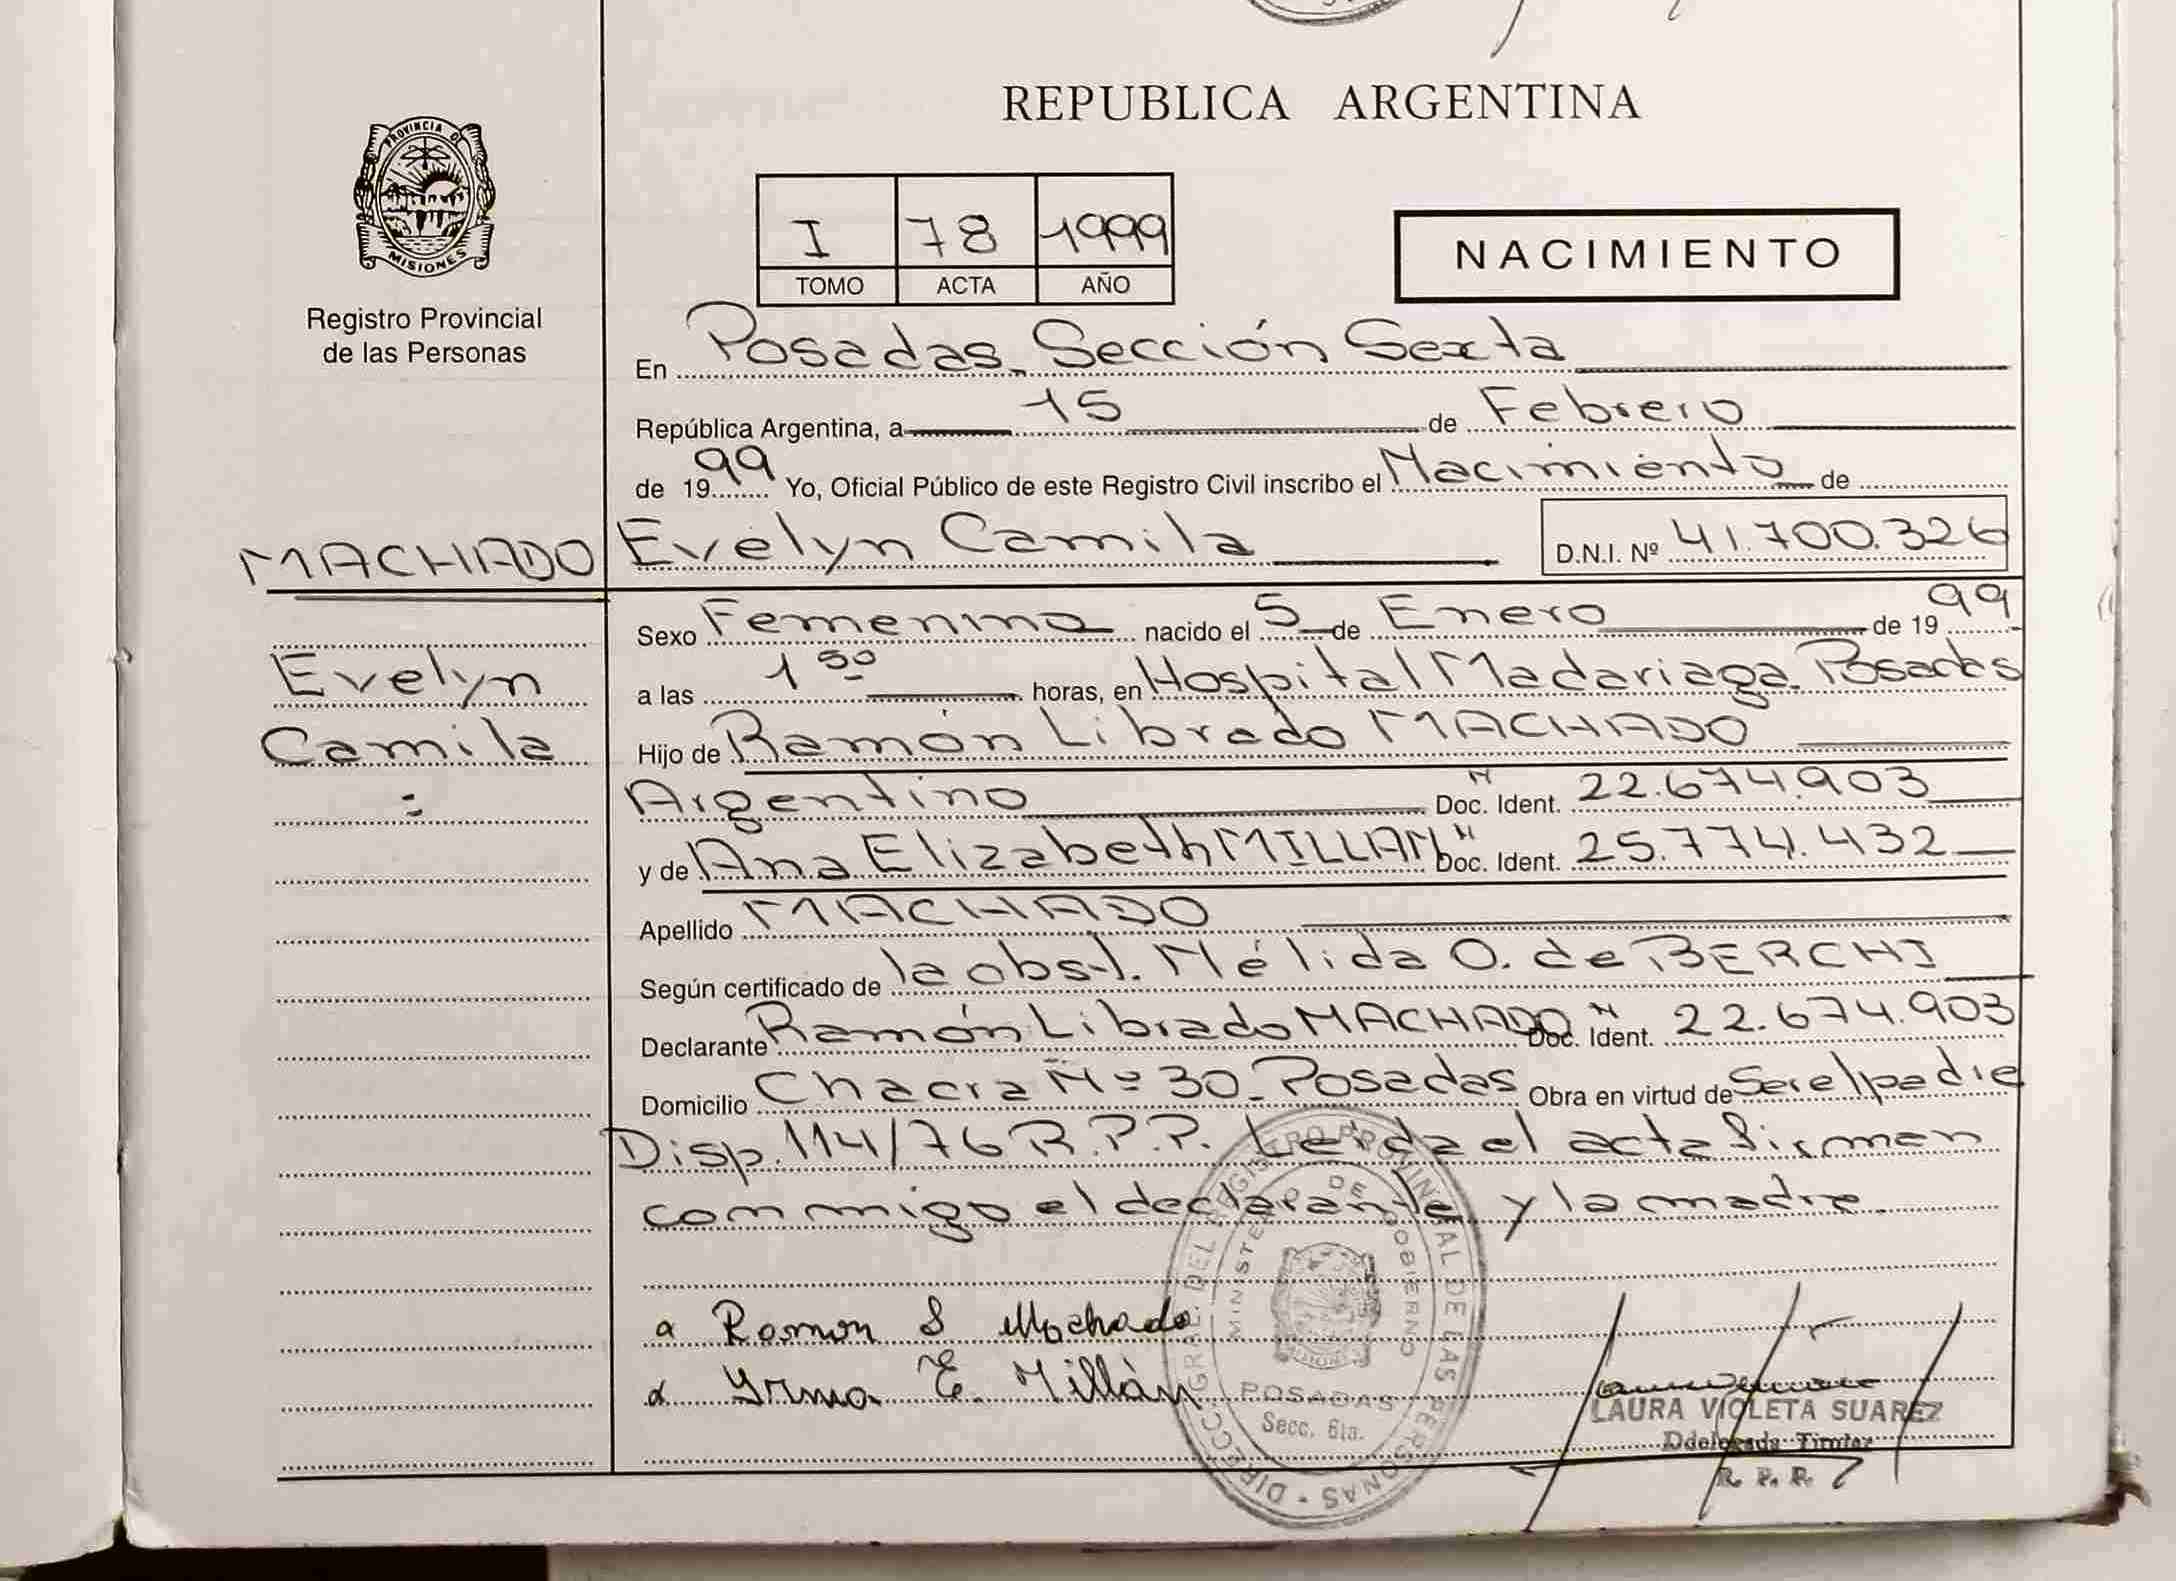 REPUBLICA ARGENTINA
PROVINCIA DE
MISIONES
Registro Provincial
de las Personas
I 78 1999
TOMO ACTA AÑO
NACIMIENTO
En Posadas, Sección Sexta
República Argentina, a 15 de Febrero
de 1999 Yo, Oficial Público de este Registro Civil inscribo el Nacimiento de
MACHADO Evelyn Camila D.N.I. Nº 41.700.326
Sexo Femenino nacido el 5 de Enero de 1999
Evelyn
a las 1 50 horas, en Hospital Madariaga. Posadas
Camila
Hijo de Ramón Librado MACHADO
Argentino Doc. Ident. 22.674.903
y de Ana Elizabeth MILLAN Doc. Ident. 25.774.432
Apellido MACHADO
Según certificado de la obst. Nélida O. de BERCHI
Declarante Ramón Librado MACHADO Doc. Ident. 22.674.903
Domicilio Chacra Nº 30_Posadas Obra en virtud de Ser el padre
Disp. 114/76 R.P.P. Leída el acta firman
conmigo el declarante y la madre.
a Ramon L Machado
a Yrma E. Millán
DIRECC. GRAL. DEL REGISTRO PROVINCIAL DE LAS PERSONAS
MINISTERIO DE GOBIERNO
POSADAS
Secc. 6ta.
LAURA VIOLETA SUAREZ
Ddelegada Titular
R. P. P.